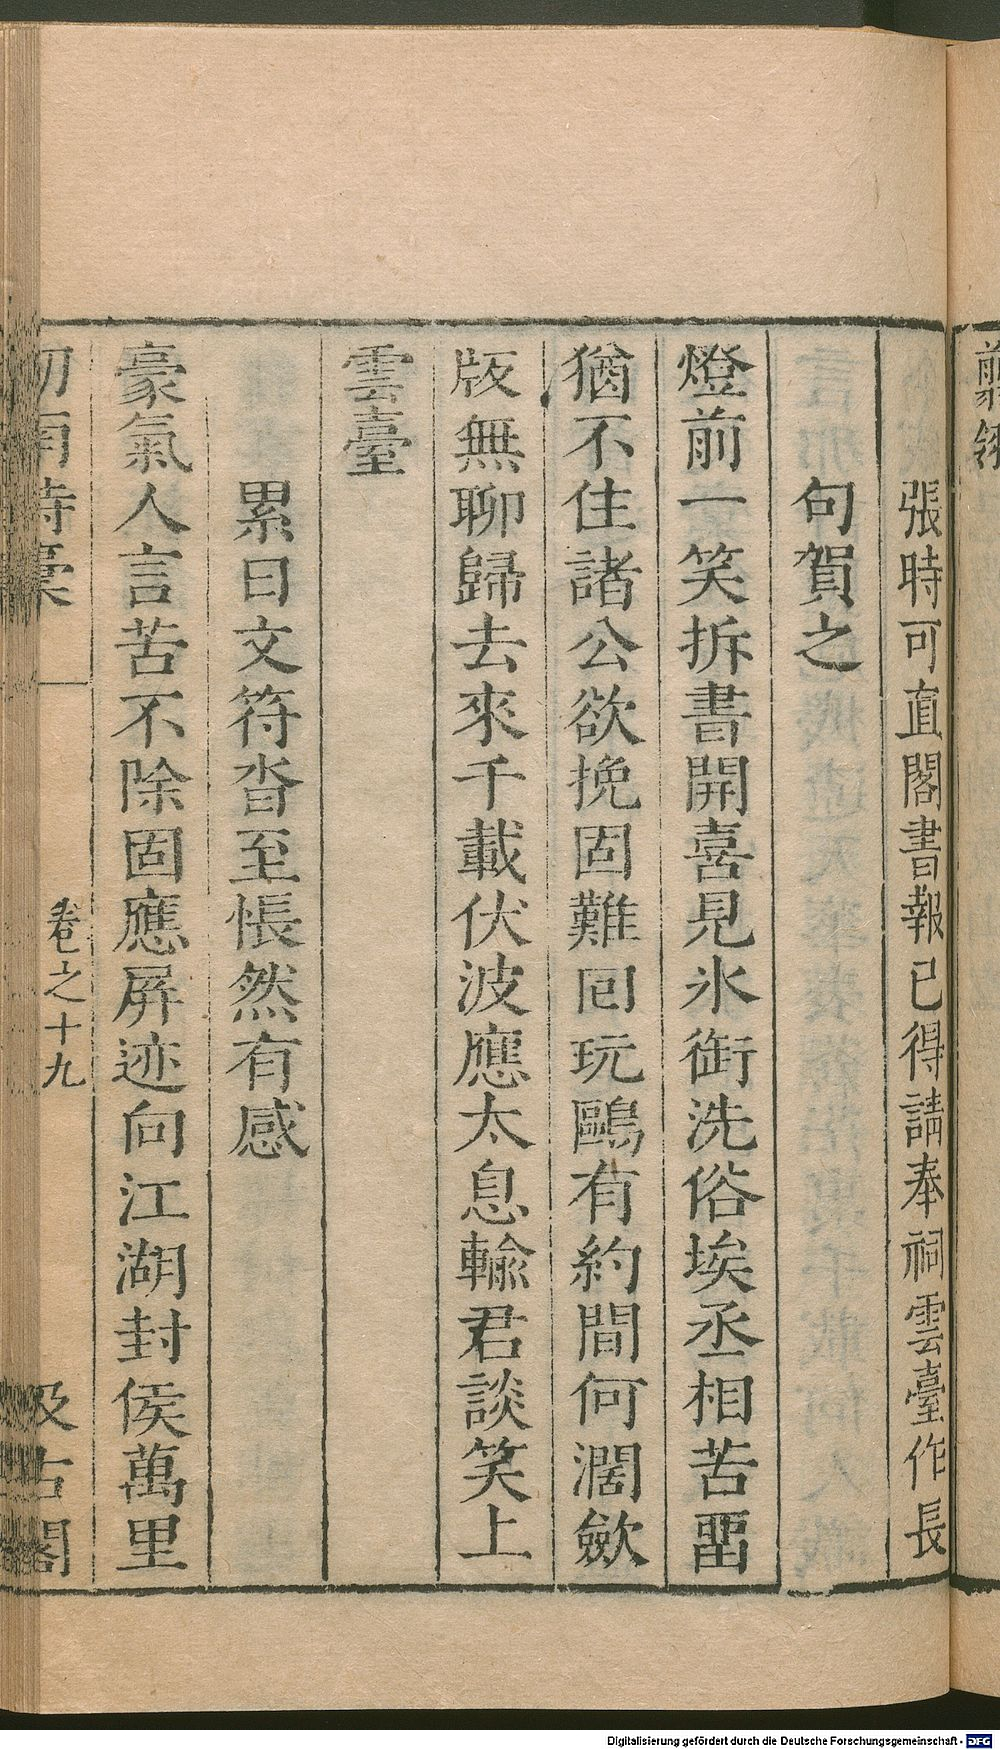 張時可直閣書報已得請奉祠雲臺作長
句賀之
燈前一笑拆書開喜見氷銜洗俗埃丞相苦畱
猶不住諸公欲挽固難囘玩鷗有約間何濶歛
版無聊歸去來千載伏波應太息輸君談笑上
雲臺
累日文符沓至悵然有感
豪氣人言苦不除固應屏迹向江湖封侯萬里
劒南詩稾
卷之十九
汲古閣
Digitalisierung gefördert durch die Deutsche Forschungsgemeinschaft - DFG